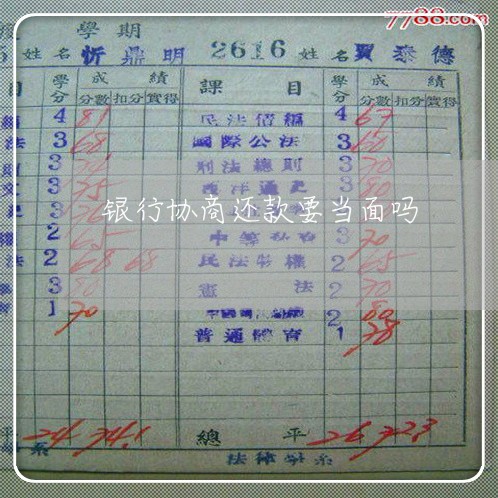 7788.com
學期
5 姓名 忻鼎明 2616 姓名 賈泰德
目 學分 成績 課目 學分 成績
分數 扣分 實得 分數 扣分 實得
4 81 民法債編 4 67
法 3 68 國際公法 3 60
3 刑法總則 3 70
3 75 西洋通史 3 80
銀行协商还款要当面吗
2 65 3 70
法 2 68 68 民法物權 2 65
3 80 憲法 2 70
1 70 2 80
普通體育 1 78
平 24 74.1 總平 26 72.3
系 法律學系